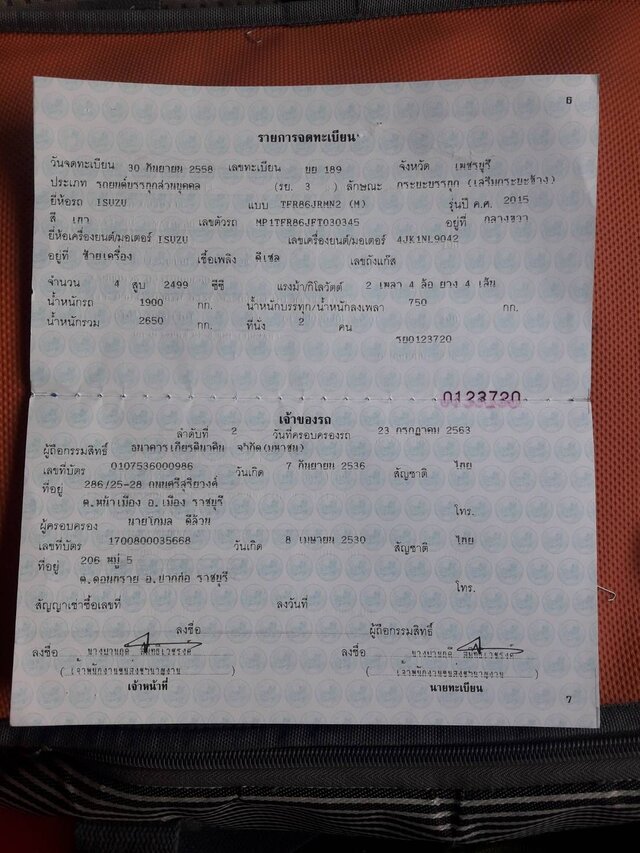 6
รายการจดทะเบียน
วันจดทะเบียน 30 กันยายน 2558 เลขทะเบียน บย 189 จังหวัด เพชรบุรี
ประเภท รถยนต์บรรทุกส่วนบุคคล (รย. 3 ) ลักษณะ กระบะบรรทุก (เสริมกระบะข้าง)
ยี่ห้อรถ ISUZU แบบ TFR86JRMN2 (M) รุ่นปี ค.ศ. 2015
สี เทา เลขตัวรถ MP1TFR86JFT030345 อยู่ที่ กลางขวา
ยี่ห้อเครื่องยนต์/มอเตอร์ ISUZU เลขเครื่องยนต์/มอเตอร์ 4JK1NL9042
อยู่ที่ ซ้ายเครื่อง เชื้อเพลิง ดีเซล เลขถังแก๊ส
จำนวน 4 สูบ 2499 ซีซี แรงม้า/กิโลวัตต์ 2 เพลา 4 ล้อ ยาง 4 เส้น
น้ำหนักรถ 1900 กก. น้ำหนักบรรทุก/น้ำหนักลงเพลา 750 กก.
น้ำหนักรวม 2650 กก. ที่นั่ง 2 คน
รย0123720
0123720
เจ้าของรถ
ลำดับที่ 2 วันที่ครอบครองรถ 23 กรกฎาคม 2563
ผู้ถือกรรมสิทธิ์ ธนาคารเกียรตินาคิน จำกัด(มหาชน)
เลขที่บัตร 0107536000986 วันเกิด 7 กันยายน 2536 สัญชาติ ไทย
ที่อยู่ 286/25-28 ถนนศรีสุริยวงศ์
ต.หน้าเมือง อ.เมือง ราชบุรี
โทร.
ผู้ครอบครอง นายโกมล ดีล้วน
เลขที่บัตร 1700800035668 วันเกิด 8 เมษายน 2530 สัญชาติ ไทย
ที่อยู่ 206 หมู่ 5
ต.ดอนทราย อ.ปากท่อ ราชบุรี
โทร.
สัญญาเช่าซื้อเลขที่ ลงวันที่
ลงชื่อ ผู้ถือกรรมสิทธิ์
ลงชื่อ ลงชื่อ
(เจ้าพนักงานขนส่งชำนาญงาน) (เจ้าพนักงานขนส่งชำนาญงาน)
เจ้าหน้าที่ นายทะเบียน
7